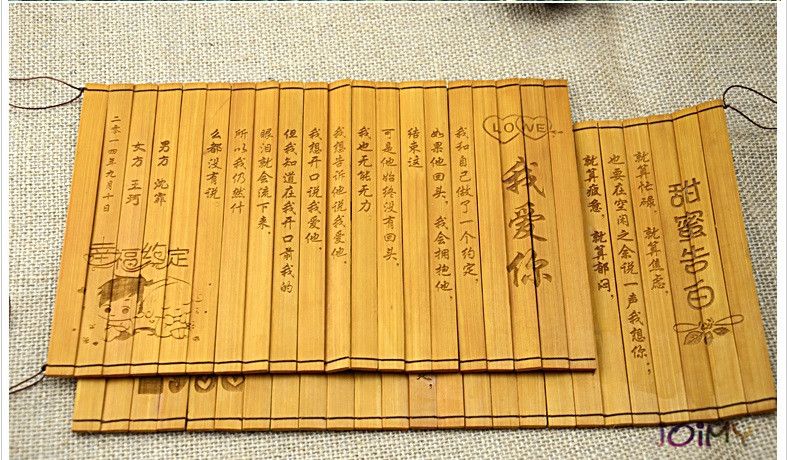 LOVE
我爱你
我和自己做了一个约定，
如果他回头，我会拥抱他，
结束这
可是他始终没有回头，
我也无能无力
我想告诉他说我爱他，
我想开口说我爱他，
但我知道在我开口前我的
眼泪就会流下来，
所以我仍然什
么都没有说
男方 沈霏
女方 王河
二零一四年九月十日
幸福约定
甜蜜告白
就算忙碌，就算焦虑，
也要在空闲之余说一声我想你，
就算疲惫，就算郁闷，
IOiMY